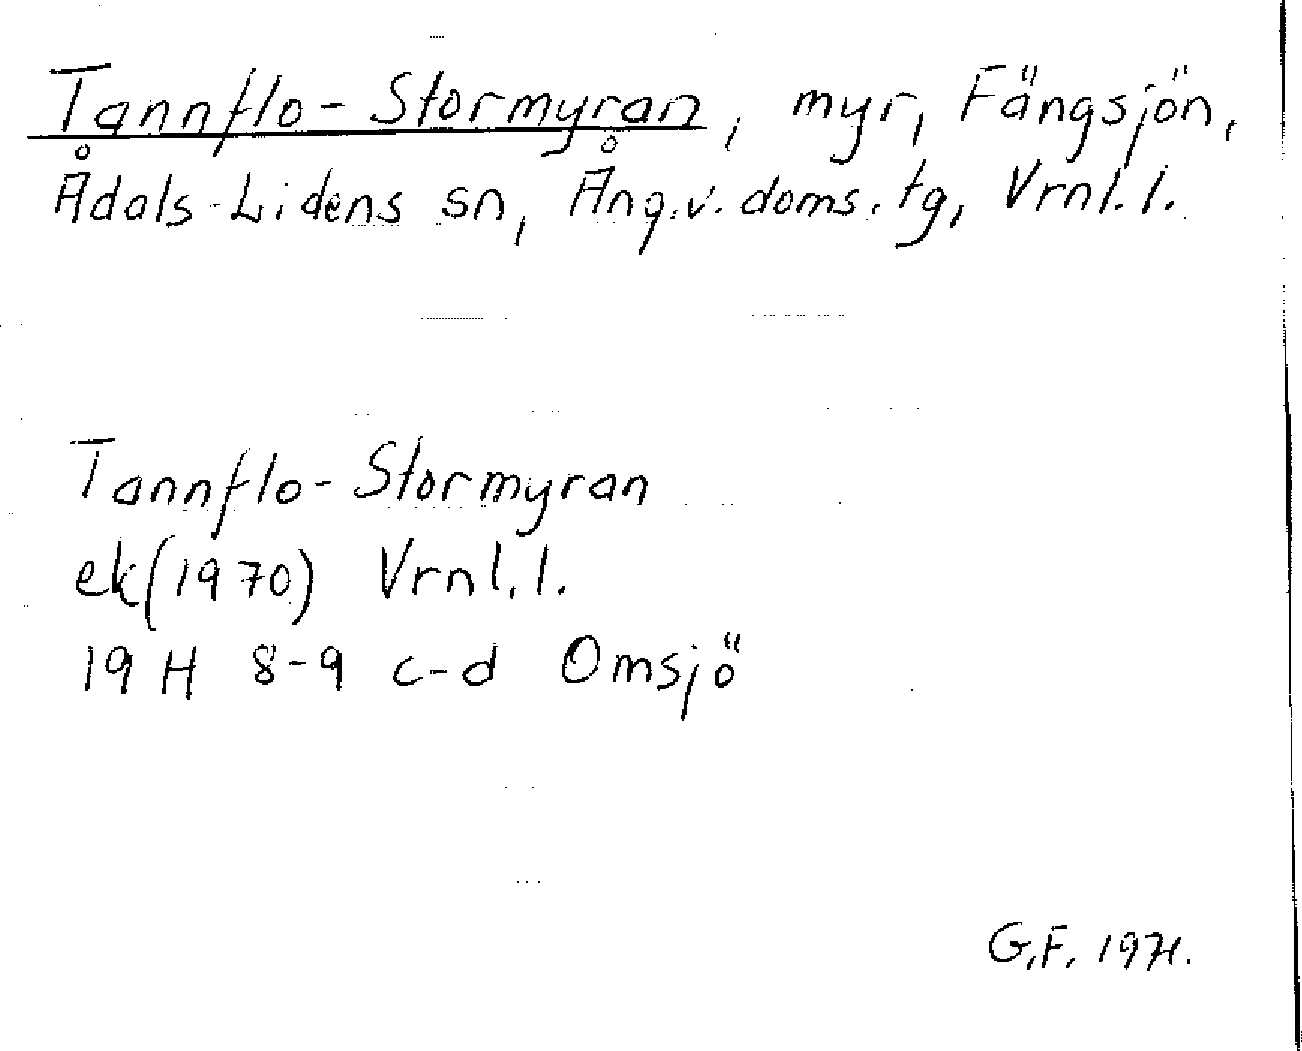 Tannflo-Stormyran, myr, Fängsjön,
Ådals-Lidens sn, Ång.v. doms. tg, Vrnl.l.
Tannflo-Stormyran
ek(1970) Vrnl.l.
19 H 8-9 c-d Omsjö
G.F. 1971.